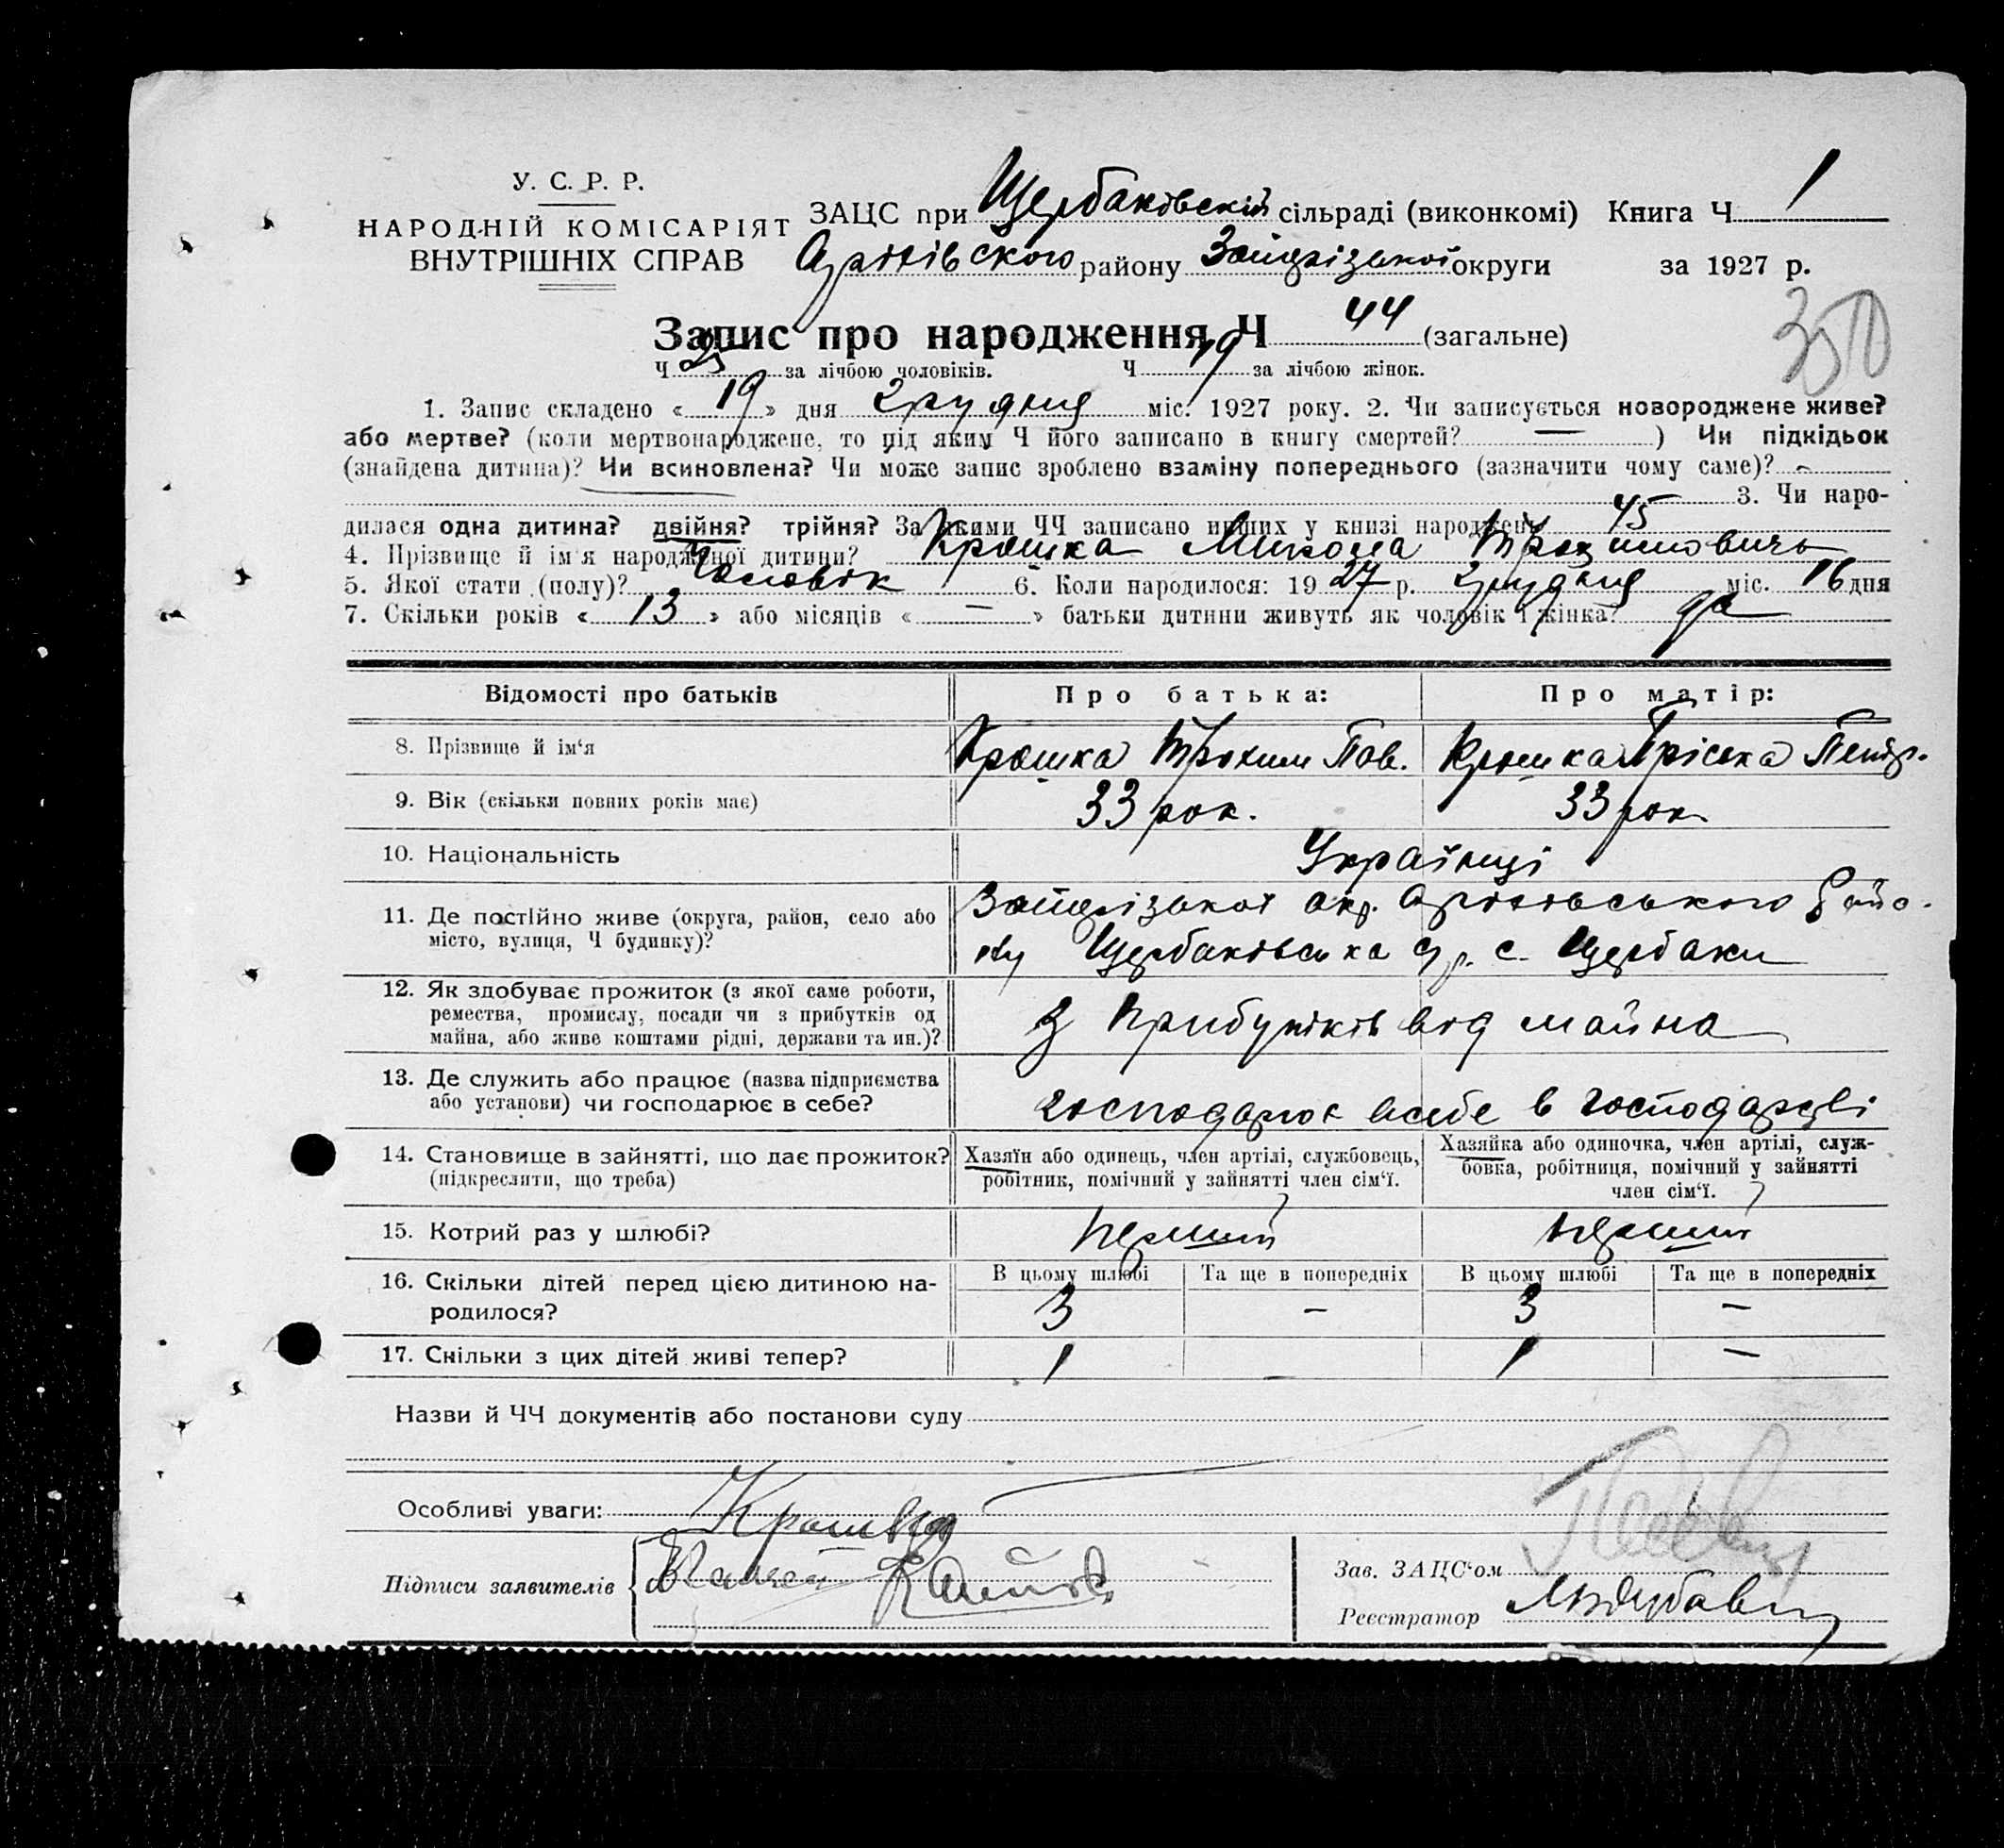 У. С. Р. Р.
НАРОДНІЙ КОМІСАРІЯТ
ВНУТРІШНІХ СПРАВ
ЗАЦС при Щербаківскій сільраді (виконкомі) Книга Ч 1
Оріхівского району Запорізької округи за 1927 р.
350
Запис про народження Ч 44 (загальне)
Ч 25 за лічбою чоловіків. Ч 19 за лічбою жінок.
1. Запис складено « 19 » дня грудня міс. 1927 року. 2. Чи записується новороджене живе?
або мертве? (коли мертвонароджене, то під яким Ч його записано в книгу смертей? — ) Чи підкідьок
(знайдена дитина)? Чи всиновлена? Чи може запис зроблено взаміну попереднього (зазначити чому саме)? -
3. Чи наро-
дилася одна дитина? двійня? трійня? За якими ЧЧ записано инших у книзі народжень 45
4. Прізвище й ім'я народженої дитини? Крошка Микола Трохимовичь
5. Якої стати (полу)? Чоловік 6. Коли народилося: 1927 р. грудня міс. 16 дня
7. Скільки років « 13 » або місяців « — » батьки дитини живуть як чоловік і жінка? да
Відомості про батьків Про батька: Про матір:
8. Прізвище й ім'я Крошка Трохим Пав. Крошка Пріська Петр.
9. Вік (скільки повних років має) 33 рок. 33 рок.
10. Національність Українці
11. Де постійно живе (округа, район, село або місто, вулиця, Ч будинку)? Запорізької окр. Оріхівського Райо-
ну Щербаківська с. Щербаки
12. Як здобуває прожиток (з якої саме роботи,
ремества, промислу, посади чи з прибутків од
майна, або живе коштами рідні, держави та ин.)? З прибутків від майна
13. Де служить або працює (назва підприємства
або установи) чи господарює в себе? господарює всебе в господарстві
14. Становище в зайнятті, що дає прожиток?
(підкреслити, що треба)
Хазяїн або одинець, член артілі, службовець,
робітник, помічний у зайнятті член сім'ї.
Хазяйка або одиночка, член артілі, служ-
бовка, робітниця, помічний у зайнятті
член сім'ї.
15. Котрий раз у шлюбі? перший перший
16. Скільки дітей перед цією дитиною на-
родилося?
В цьому шлюбі Та ще в попередніх В цьому шлюбі Та ще в попередніх
3 – 3 –
17. Скільки з цих дітей живі тепер? 1 – 1 —
Назви й ЧЧ документів або постанови суду
Особливі уваги:
Підписи заявителів
Зав. ЗАЦС'ом
Реєстратор